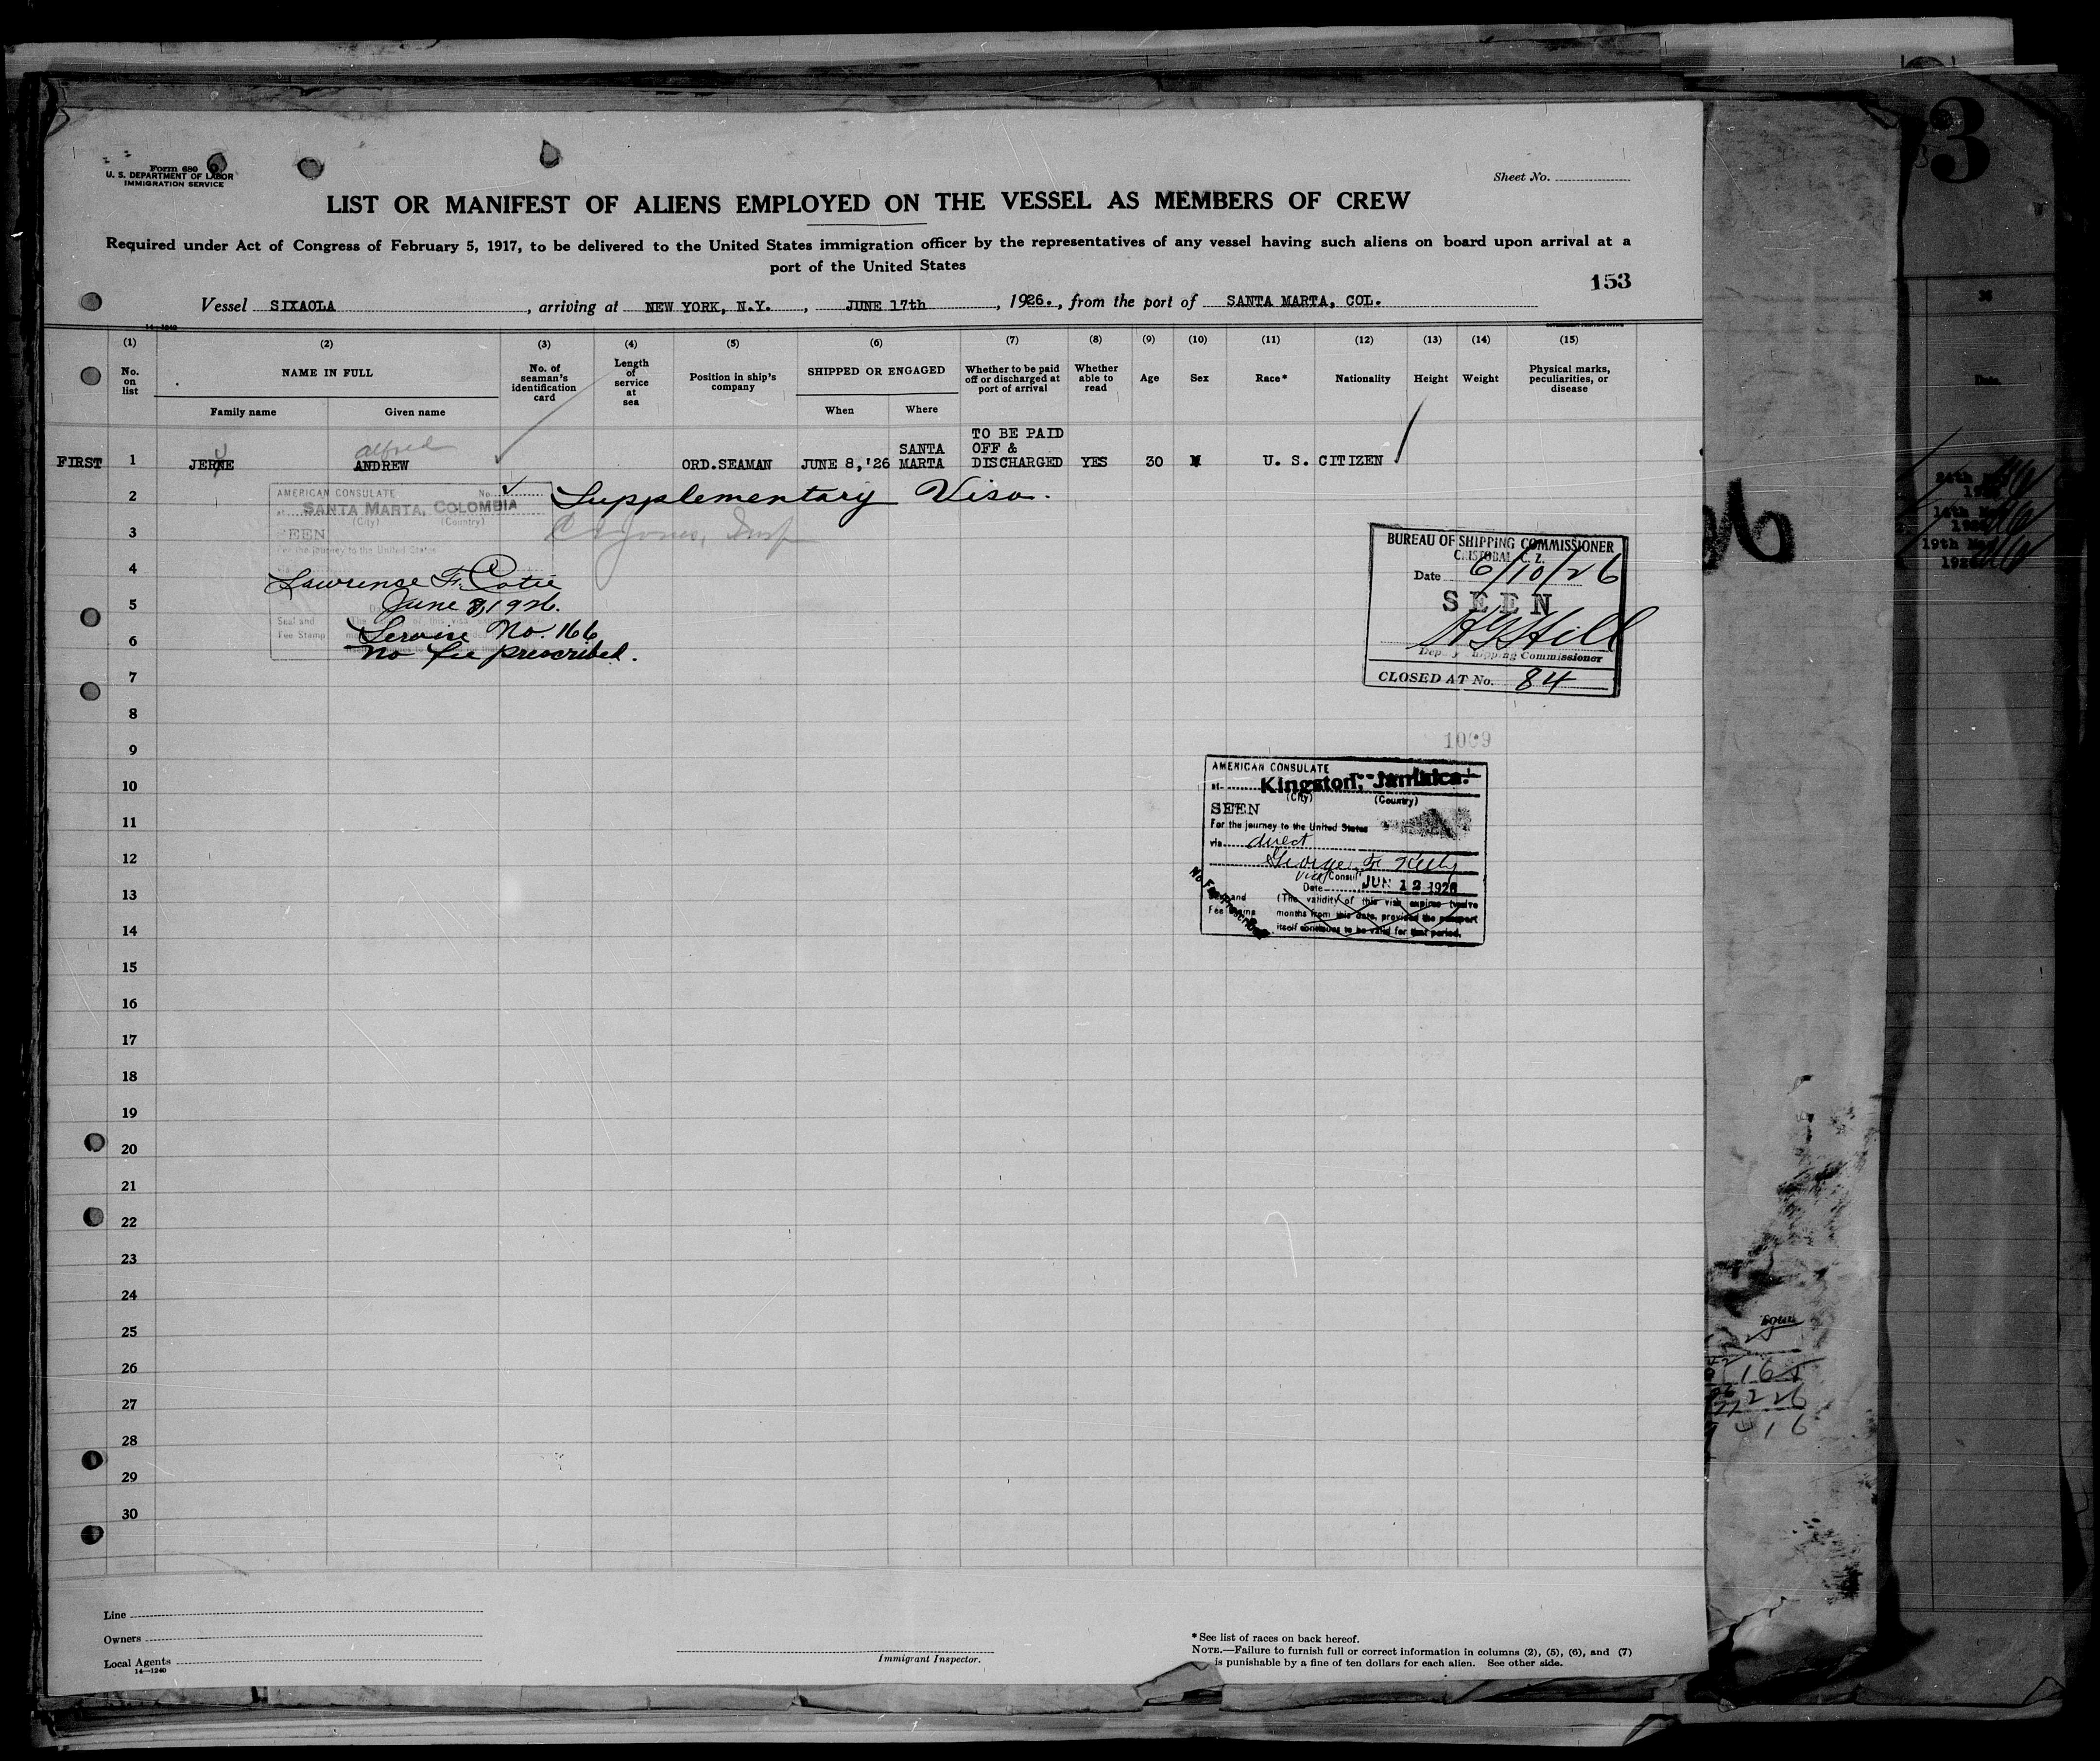 3
Form 680
U. S. DEPARTMENT OF LABOR
IMMIGRATION SERVICE
Sheet No.
LIST OR MANIFEST OF ALIENS EMPLOYED ON THE VESSEL AS MEMBERS OF CREW
Required under Act of Congress of February 5, 1917, to be delivered to the United States immigration officer by the representatives of any vessel having such aliens on board upon arrival at a
port of the United States
153
Vessel SIXAOLA, arriving at NEW YORK, N.Y., JUNE 17th, 1926., from the port of SANTA MARTA, COL.
14—1240
(1) (2) (3) (4) (5) (6) (7) (8) (9) (10) (11) (12) (13) (14) (15)
No. on list
NAME IN FULL
Family name Given name
No. of seaman's identification card
Length of service at sea
Position in ship's company
SHIPPED OR ENGAGED
When Where
Whether to be paid off or discharged at port of arrival
Whether able to read
Age
Sex
Race*
Nationality
Height
Weight
Physical marks, peculiarities, or disease
alfred
FIRST 1 ANDREW ORD.SEAMAN JUNE 8,'26 SANTA MARTA TO BE PAID OFF & DISCHARGED YES 30 M U. S. CITIZEN
2
3
4
5
6
7
8
9
10
11
12
13
14
15
16
17
18
19
20
21
22
23
24
25
26
27
28
29
30
AMERICAN CONSULATE No.
at SANTA MARTA, COLOMBIA
(City) (Country)
SEEN
For the journey to the United States
Supplementary Visa.
Jones, Insp
Lawrence F. Cotie
June 8, 1926.
Seal and
Fee Stamp
Service No. 166
No fee prescribed.
BUREAU OF SHIPPING COMMISSIONER
CRISTOBAL C. Z.
Date 6/10/26
SEEN
H Hill
Deputy Shipping Commissioner
CLOSED AT No. 84
1009
AMERICAN CONSULATE
at Kingston, Jamaica.
(City) (Country)
SEEN
For the journey to the United States
via direct
George F. Kelly
Vice Consul
Date JUN 12 1926
No Fee Prescribed
Seal and
Fee Stamp
(The validity of this visa expires twelve
months from this date, provided the passport
itself continues to be valid for that period.
Line
Owners
Local Agents
14—1240
Immigrant Inspector.
*See list of races on back hereof.
NOTE.—Failure to furnish full or correct information in columns (2), (5), (6), and (7)
is punishable by a fine of ten dollars for each alien. See other side.
36
Date.
24th
14th
19th
165
226